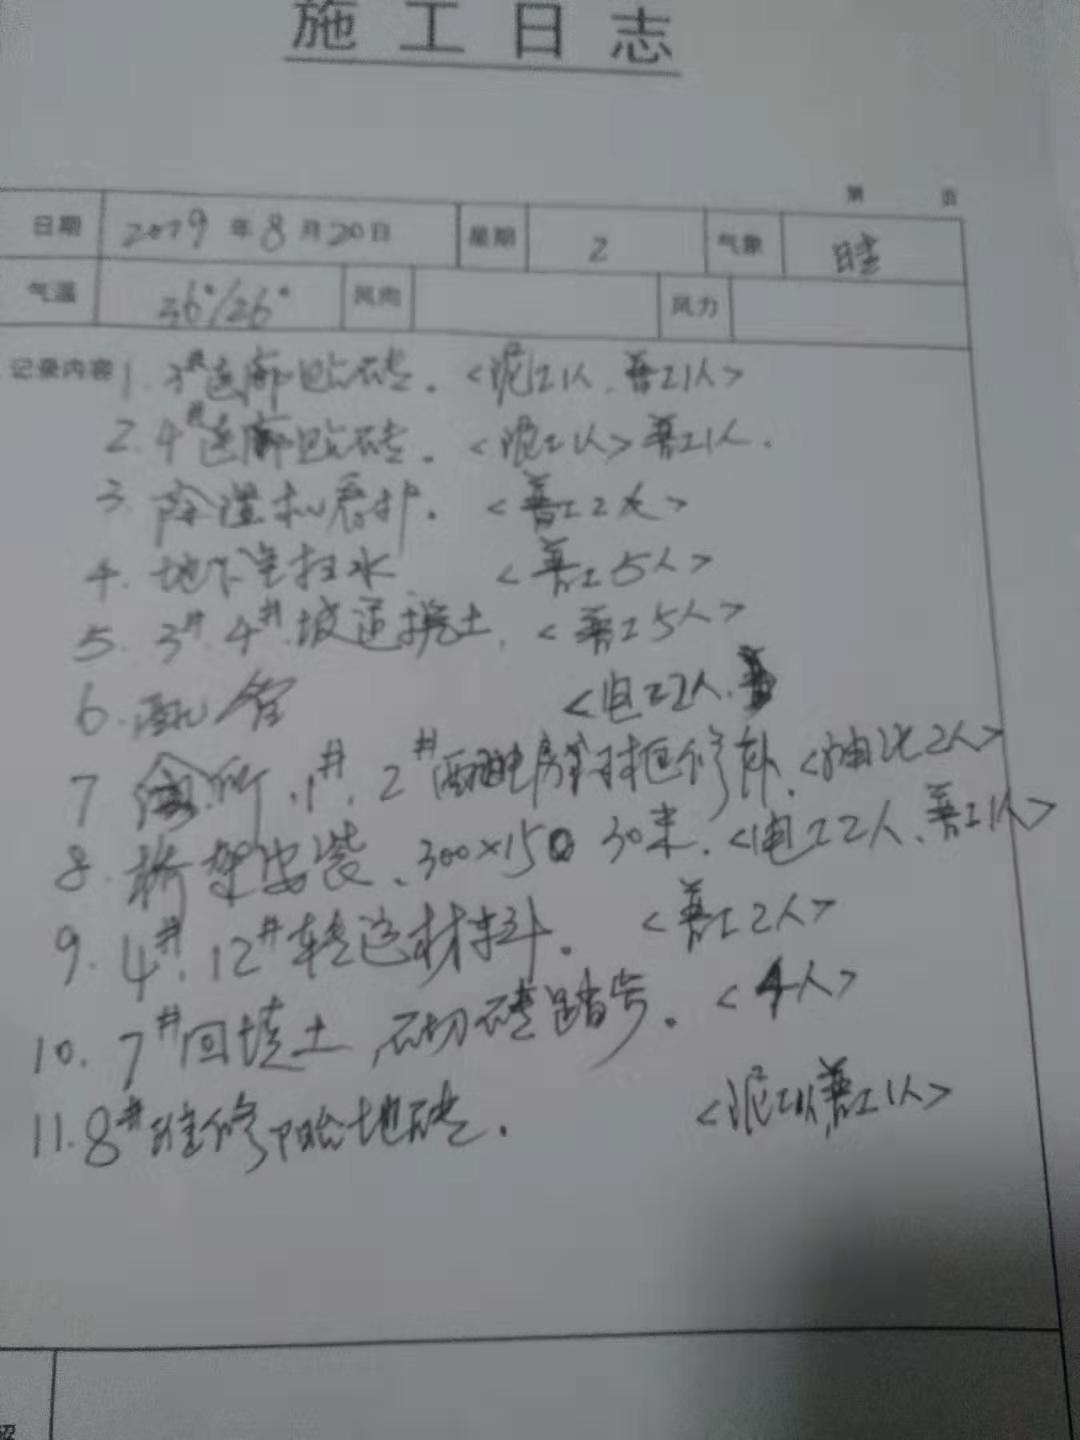 施工日志
第 页
日期 2019年8月20日 星期 2 气象 晴
气温 36°/26° 风向 风力
记录内容 1. 3#连廊贴砖. <泥工1人. 普工1人>
2. 4#连廊贴砖. <泥工1人> 普工1人.
3. 除湿机看护. <普工2人>
4. 地下室扫水 <普工5人>
5. 3#.4#坡道挖土. <普工5人>
6. 配管 <电工2人.
7 会所.1#.2#配电房 框修补. <油漆2人>
8. 桥架安装、300×150 30米. <电工2人、普工1人>
9. 4#、12#转运材料. <普工2人>
10. 7#回填土,砌砖踏步. <4人>
11. 8#维修 地砖. <泥工1人,普工1人>